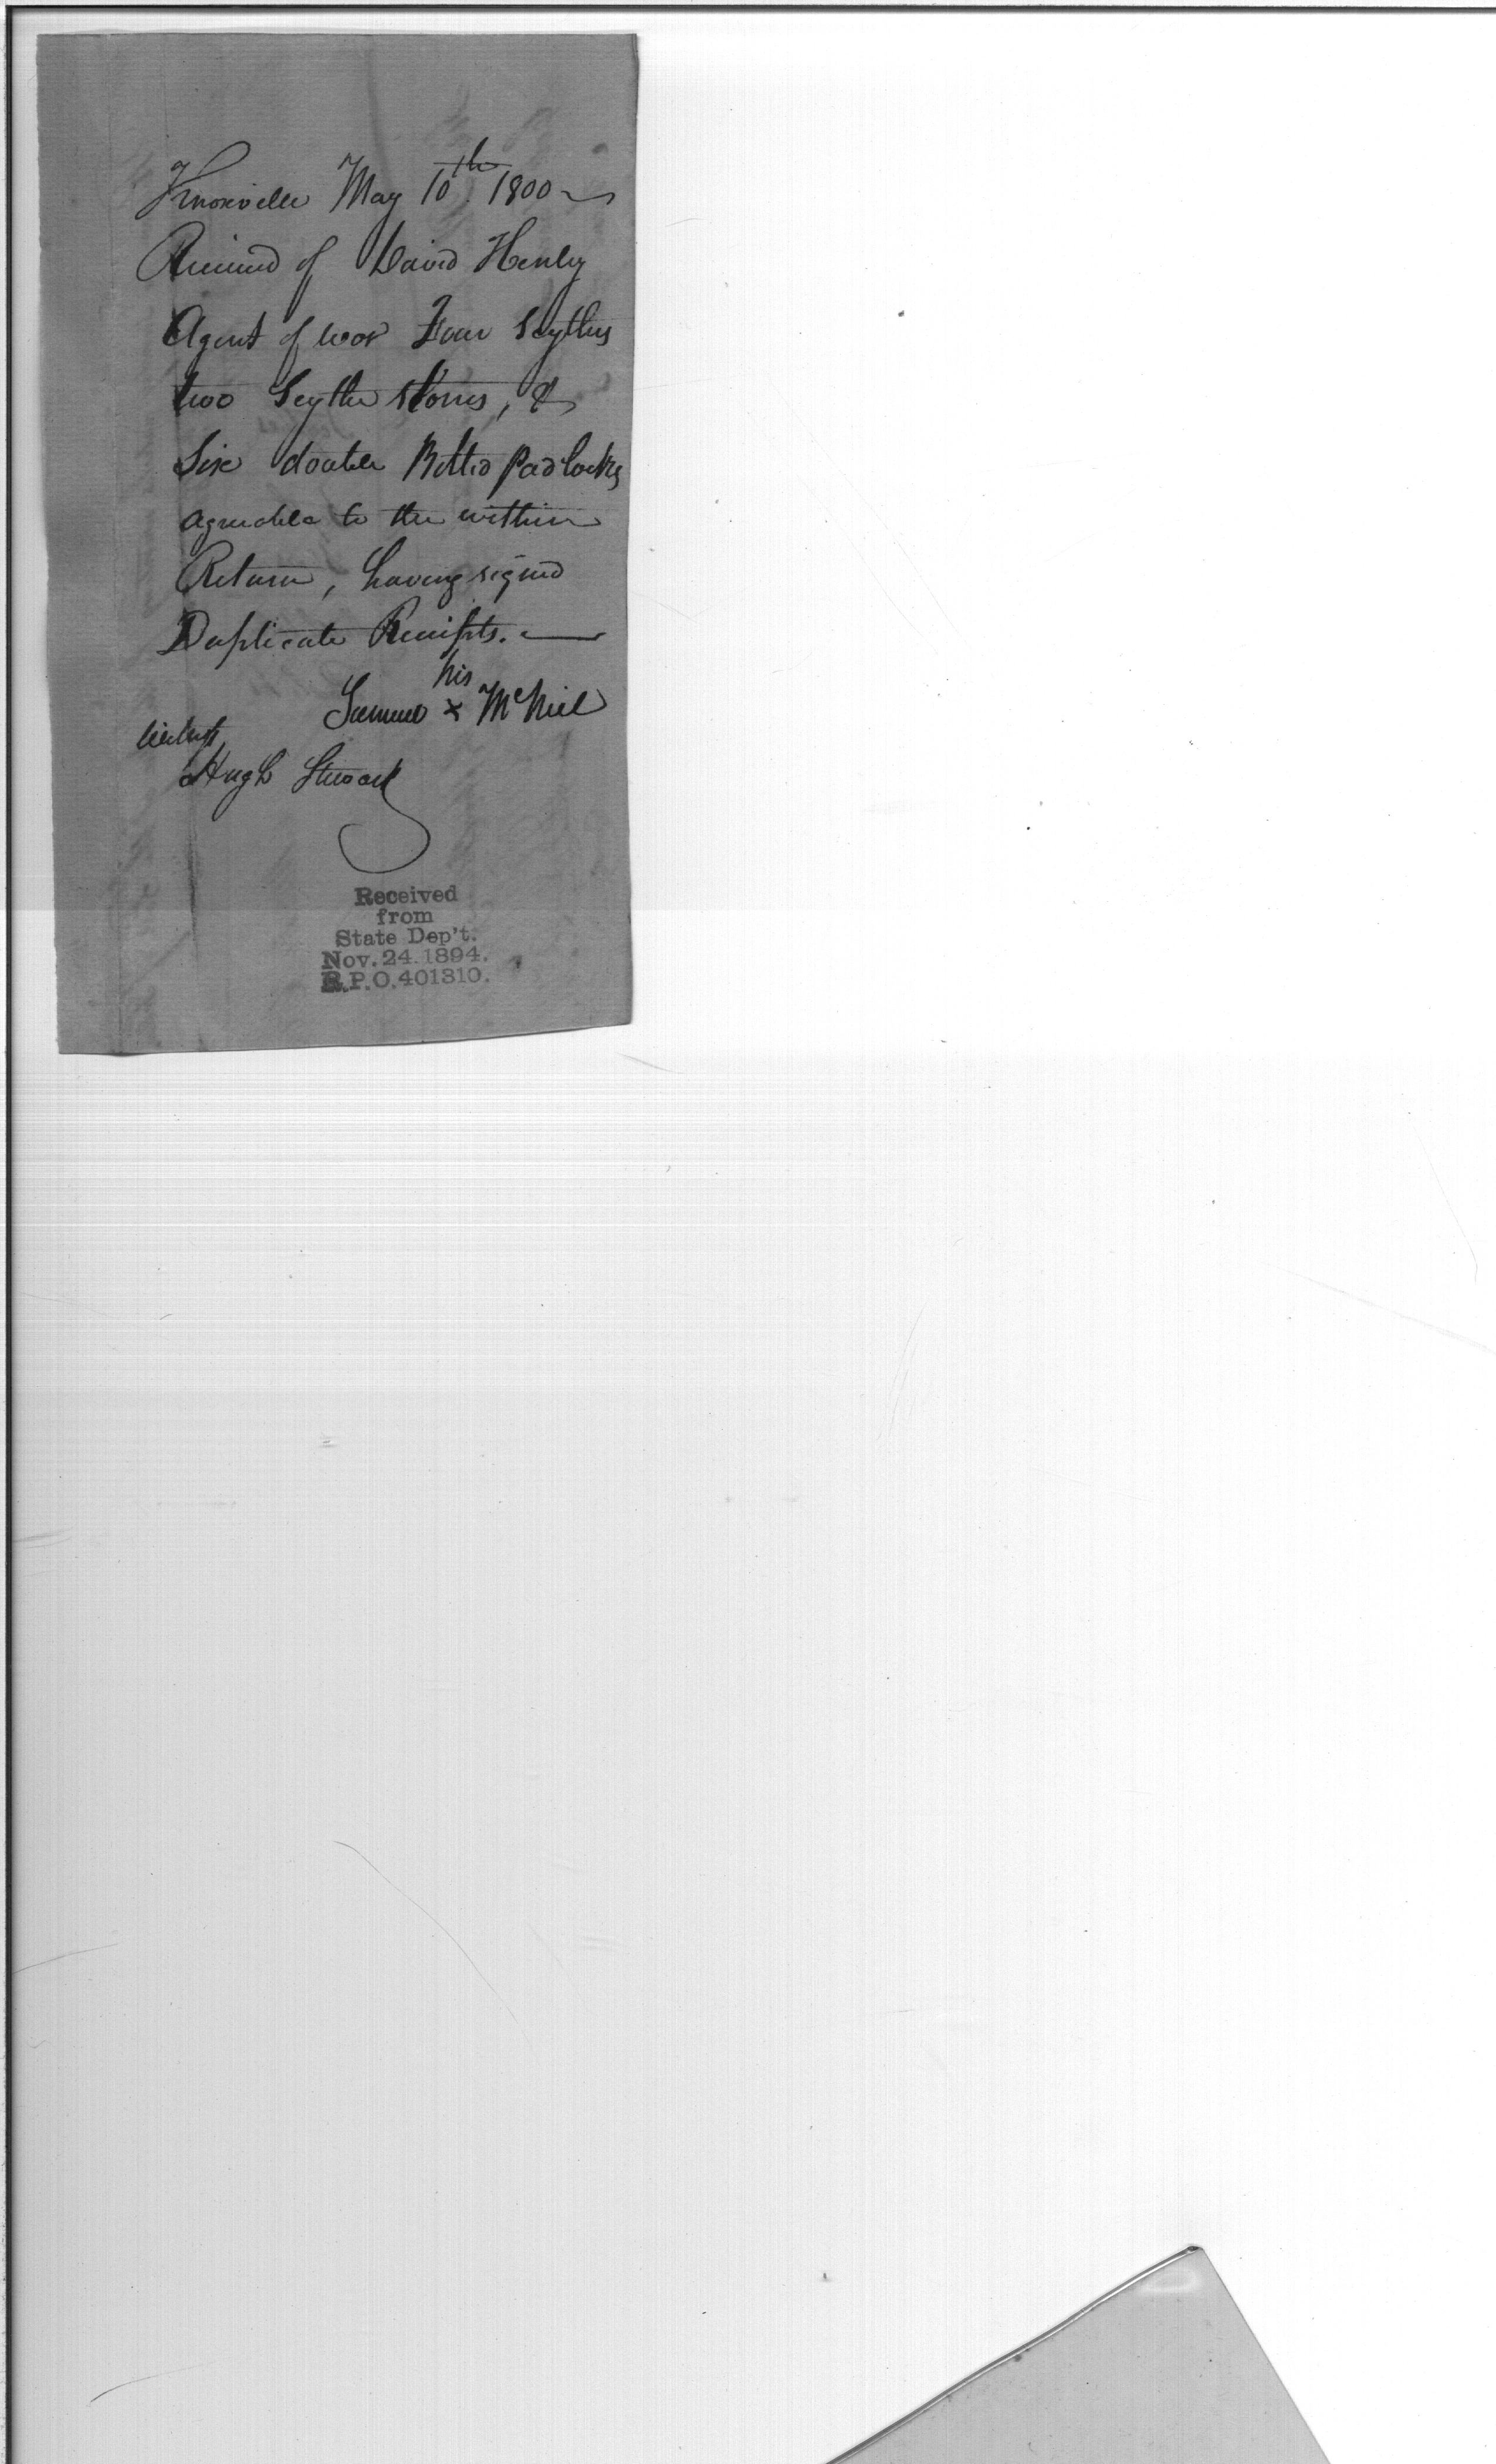 Knoxville May 10th. 1800
Received of David Henley
Agent of war Four Scythes
two Scythe stones, &
Six double Bitted padlocks
agreeable to the within
Return, having signed
Duplicate Receipts. —
his
Samuel x McNeil
Witness
Hugh Stuart
Received
from
State Dep't.
Nov. 24. 1894.
R.P.O. 401310.